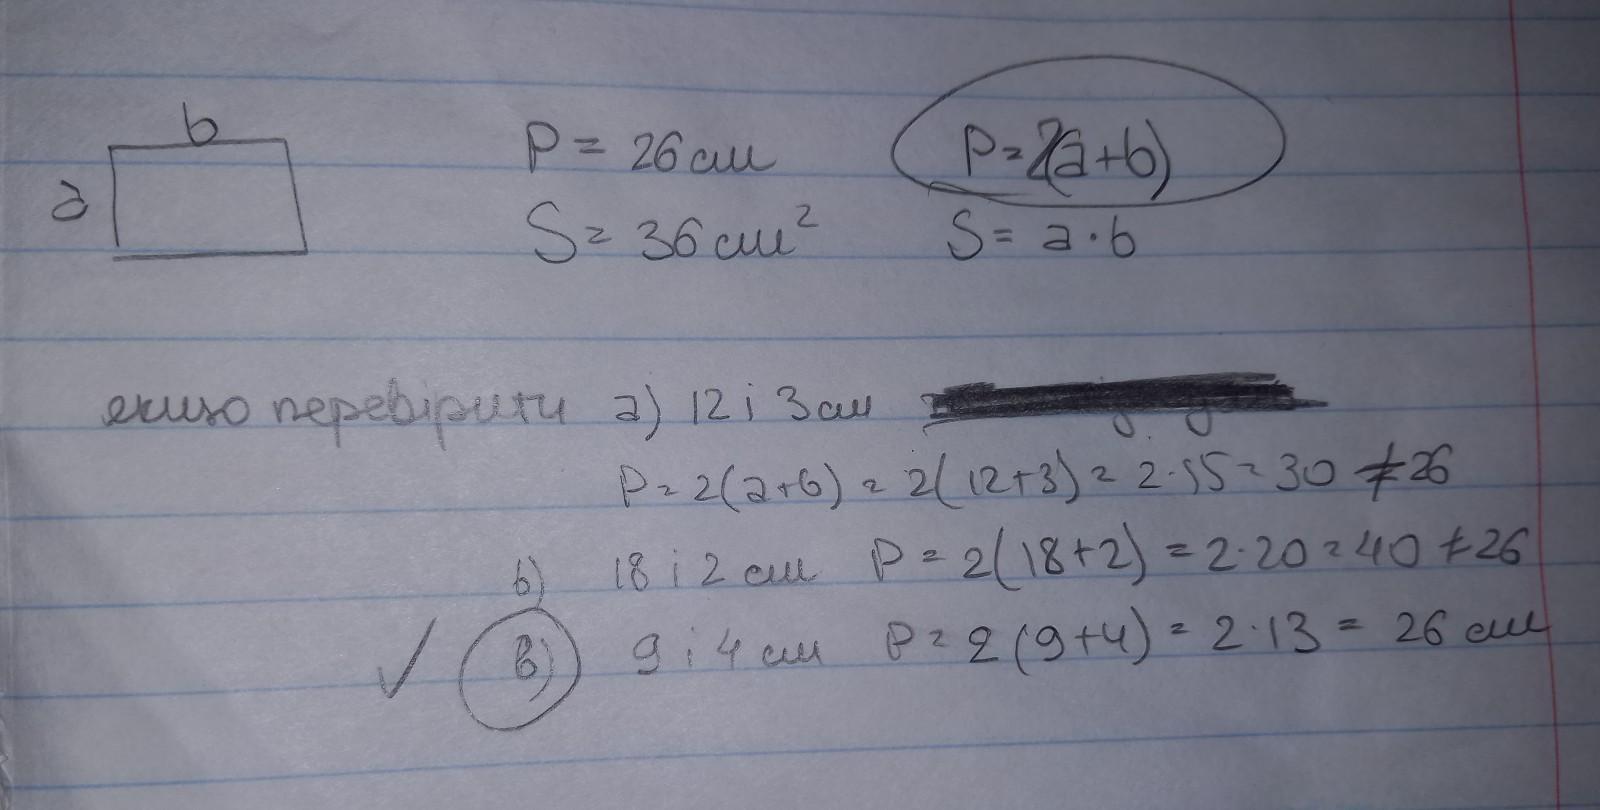 b
a
P = 26 см P = 2(a+b)
S = 36 см² S = a · b
якщо перевірити а) 12 і 3 см
P = 2(a+b) = 2(12+3) = 2·15 = 30 ≠ 26
б) 18 і 2 см P = 2(18+2) = 2·20 = 40 ≠ 26
✓ в) 9 і 4 см P = 2(9+4) = 2·13 = 26 см